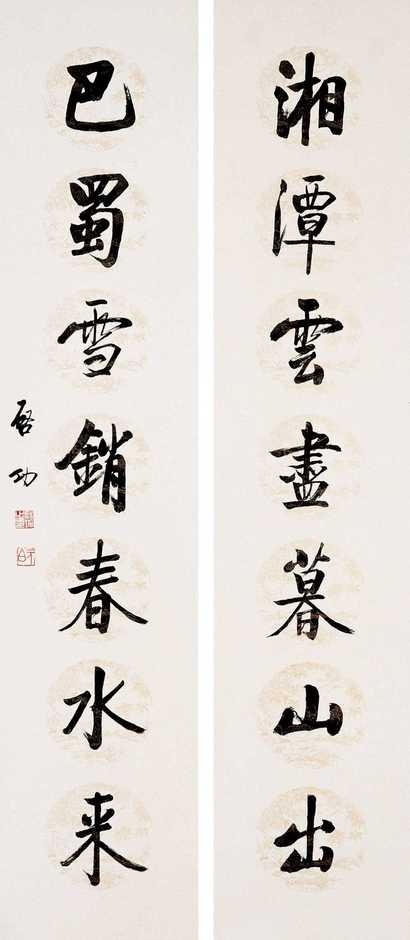 湘潭雲盡暮山出
巴蜀雪銷春水来
啓功